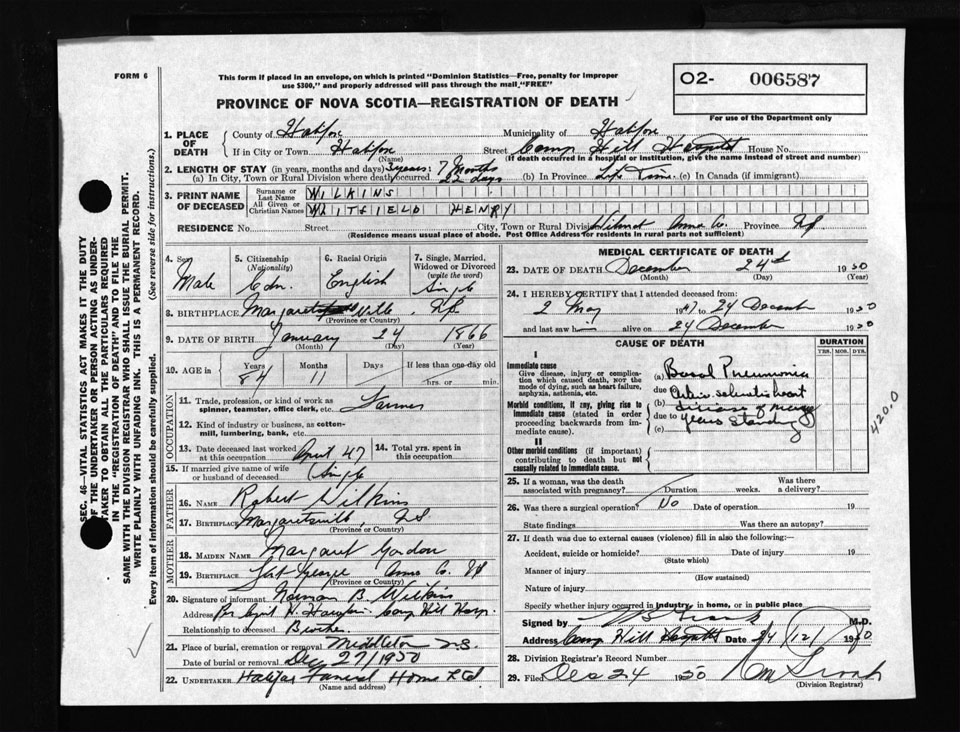 FORM 6
This form if placed in an envelope, on which is printed "Dominion Statistics—Free, penalty for improper
use $300," and properly addressed will pass through the mail "FREE"
O2- 006587
For use of the Department only
PROVINCE OF NOVA SCOTIA—REGISTRATION OF DEATH
1. PLACE OF DEATH
County of Halifax Municipality of Halifax
If in City or Town Halifax Street Camp Hill Hospital House No.
(Name) (If death occurred in a hospital or institution, give the name instead of street and number)
2. LENGTH OF STAY (in years, months and days) 3 years: 7 Months
(a) In City, Town or Rural Division where death occurred 22 days (b) In Province Life Time (c) In Canada (if immigrant)
3. PRINT NAME OF DECEASED
Surname or Last Name WILKINS
All Given or Christian Names WHITFIELD HENRY
RESIDENCE No. Street City, Town or Rural Division Wilmot Anna Co. Province NS
(Residence means usual place of abode. Post Office Address for residents in rural parts not sufficient)
4. Sex Male
5. Citizenship (Nationality) Cdn.
6. Racial Origin English
7. Single, Married, Widowed or Divorced (write the word) Single
8. BIRTHPLACE Margaretsville, NS
(Province or Country)
9. DATE OF BIRTH January 24 1866
(Month) (Day) (Year)
10. AGE in Years 84 Months 11 Days If less than one day old
hrs. or min.
OCCUPATION
11. Trade, profession, or kind of work as spinner, teamster, office clerk, etc. Farmer
12. Kind of industry or business, as cotton-mill, lumbering, bank, etc.
13. Date deceased last worked at this occupation April 47
14. Total yrs. spent in this occupation
15. If married give name of wife or husband of deceased Single
FATHER
16. NAME Robert Wilkins
17. BIRTHPLACE Margaretsville, NS
(Province or Country)
MOTHER
18. MAIDEN NAME Margaret Gordon
19. BIRTHPLACE George Anna Co. NS
(Province or Country)
20. Signature of informant Norman B. Wilkins
Address Camp Hill Hosp.
Relationship to deceased Brother
21. Place of burial, cremation or removal Middleton N.S.
Date of burial or removal Dec 27/1950
22. UNDERTAKER Halifax Funeral Home Ltd
(Name and address)
MEDICAL CERTIFICATE OF DEATH
23. DATE OF DEATH December 24th 1950
(Month) (Day)
24. I HEREBY CERTIFY that I attended deceased from:
2 May 1947 to 24 December 1950
and last saw him alive on 24 December 1950
CAUSE OF DEATH
DURATION
YRS. MOS. DYS.
I
Immediate cause
Give disease, injury or complication which caused death, NOT the mode of dying, such as heart failure, asphyxia, asthenia, etc.
Morbid conditions, if any, giving rise to immediate cause (stated in order proceeding backwards from immediate cause).
II
Other morbid conditions (if important) contributing to death but not causally related to immediate cause.
(a) Basal Pneumonia
due to Arterio sclerotic heart
(b) disease of many
due to years standing
(c)
420.0
25. If a woman, was the death associated with pregnancy? Duration weeks. Was there a delivery?
26. Was there a surgical operation? No Date of operation 19
State findings Was there an autopsy?
27. If death was due to external causes (violence) fill in also the following:—
Accident, suicide or homicide? Date of injury 19
(State which)
Manner of injury
(How sustained)
Nature of injury
Specify whether injury occurred in industry, in home, or in public place
Signed by M.D.
Address Camp Hill Hospital Date 24/12/1950
28. Division Registrar's Record Number
29. Filed Dec 24 1950
(Division Registrar)
SEC. 46—VITAL STATISTICS ACT MAKES IT THE DUTY
OF THE UNDERTAKER OR PERSON ACTING AS UNDER-
TAKER TO OBTAIN ALL THE PARTICULARS REQUIRED
IN THE "REGISTRATION OF DEATH" AND TO FILE THE
SAME WITH THE DIVISION REGISTRAR WHO SHALL ISSUE THE BURIAL PERMIT.
WRITE PLAINLY WITH UNFADING INK. THIS IS A PERMANENT RECORD.
Every item of information should be carefully supplied. (See reverse side for instructions.)